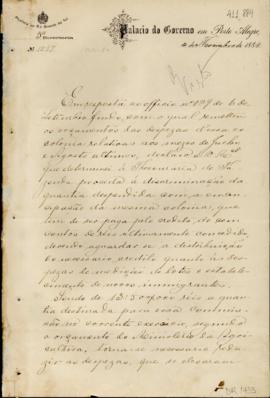 411 884
Palacio do Governo em Porto Alegre,
4 de Novembro de 1884
2ª Directoria
N. 1257
Visto
Em resposta ao officio nº 199 de 6 de
Setembro findo, com o qual remetteu
os orçamentos das despezas dessa ex
colonia relativas aos mezes de Julho
e Agosto ultimos, declaro a V. Mce
que determinei à Thesouraria de Fa-
zenda proceda a discriminação da
quantia despendida com a eman-
cipação da mesma colonia, que
tem de ser paga pelo credito de
contos de réis ultimamente concedido,
devendo aguardar-se a distribuição
do necessario credito quanto às des-
pezas de medição de lotes e estabele-
cimento de novos immigrantes.
Sendo de réis a quan-
tia destinada para essa Commis-
são no corrente exercicio, segundo
o orçamento do Ministerio da Agri-
cultura, torna-se necessario redu-
zir as despezas, que se elevaram